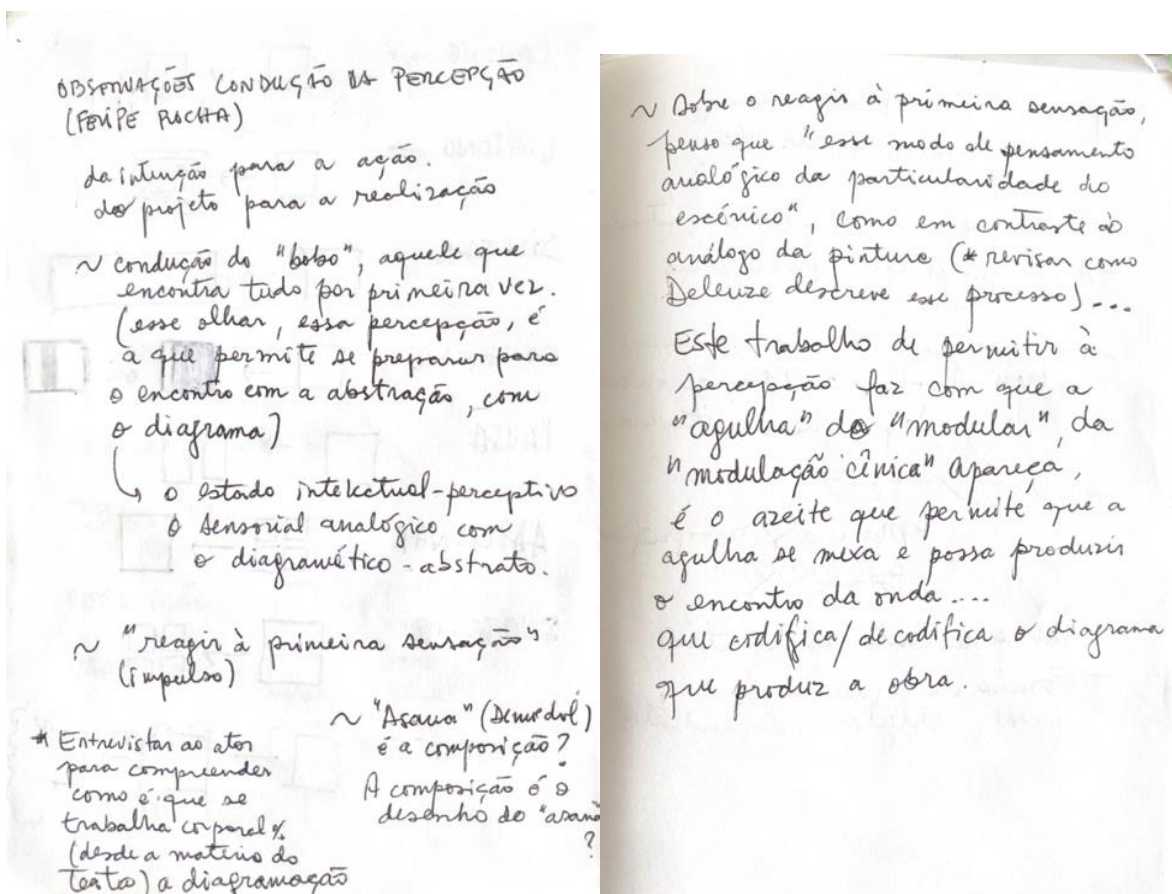 OBSERVAÇÕES CONDUÇÃO DA PERCEPÇÃO
(FELIPE ROCHA)
da intenção para a ação.
do projeto para a realização
~ condução do "bobo", aquele que
encontra tudo por primeira vez.
(esse olhar, essa percepção, é
a que permite se preparar para
o encontro com a abstração, com
o diagrama)
↳ o estado intelectual-perceptivo
o sensorial analógico com
o diagramático-abstrato.
~ "reagir à primeira sensação"
(impulso)
* Entrevistar ao ator
para compreender
como é que se
trabalha corporal%
(desde a materia do
teatro) a diagramação
~ "Asana"
é a composição?
A composição é o
desenho do "asana
?
~ Sobre o reagir à primeira sensação,
penso que "esse modo de pensamento
analógico da particularidade do
escênico", como em contraste ao
análogo da pintura (* revisar como
Deleuze descreve esse processo)...
Este trabalho de permitir à
percepção faz com que a
"agulha" do "modular", da
"modulação cênica" apareça,
é o azeite que permite que a
agulha se mexa e possa produzir
o encontro da onda....
que codifica/decodifica o diagrama
que produz a obra.